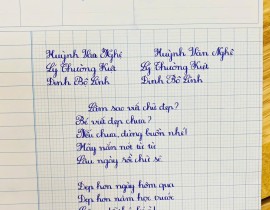 Huỳnh Văn Nghệ Huỳnh Văn Nghệ
Lý Thường Kiệt Lý Thường Kiệt
Đinh Bộ Lĩnh Đinh Bộ Lĩnh
Làm sao vẽ chữ đẹp?
Bé vẽ đẹp chưa?
Nếu chưa, đừng buồn nhé!
Hãy nắn nót từ từ
Lâu ngày rồi chữ sẽ
Đẹp hơn ngày hôm qua
Đẹp hơn năm học trước